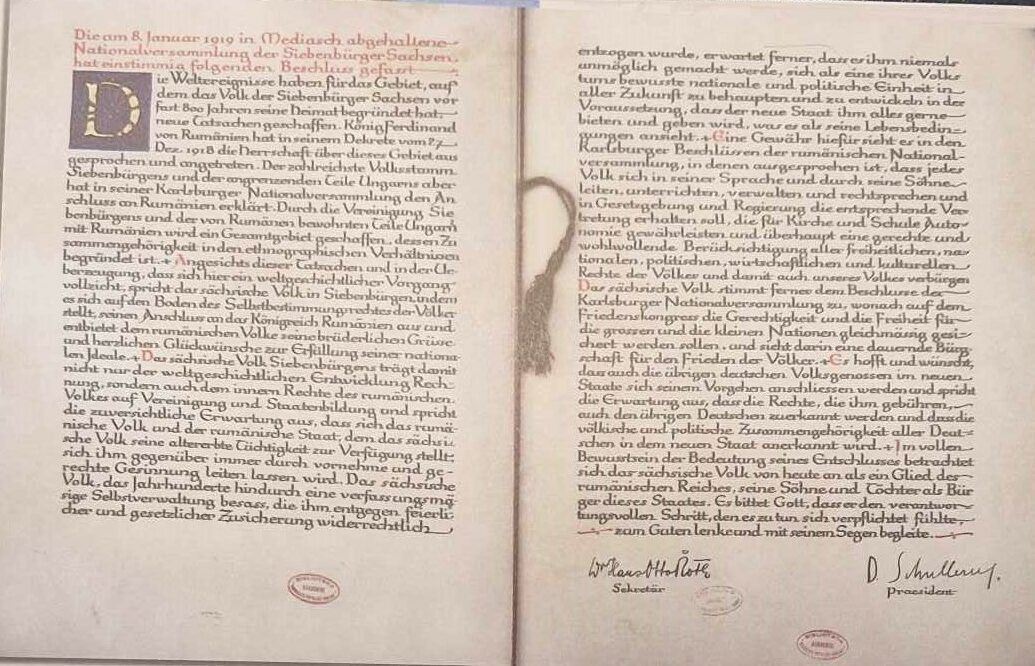 Die am 8. Januar 1919 in Mediasch abgehaltene
Nationalversammlung der Siebenbürger Sachsen,
hat einstimmig folgenden Beschluss gefasst
Die Weltereignisse haben für das Gebiet, auf
dem das Volk der Siebenbürger Sachsen vor
fast 800 Jahren seine Heimat begründet hat,
neue Tatsachen geschaffen. König Ferdinand
von Rumänien hat in seinem Dekrete vom 27.
Dez. 1918 die Herrschaft über dieses Gebiet aus
gesprochen und angetreten. Der zahlreichste Volksstamm
Siebenbürgens und der angrenzenden Teile Ungarns aber
hat in seiner Karlsburger Nationalversammlung den An
schluss an Rumänien erklärt. Durch die Vereinigung Sie
benbürgens und der von Rumänen bewohnten Teile Ungarn
mit Rumänien wird ein Gesamtgebiet geschaffen, dessen Zu
sammengehörigkeit in den ethnographischen Verhältnissen
begründet ist. + Angesichts dieser Tatsachen und in der Ue-
berzeugung, dass sich hier ein weltgeschichtlicher Vorgang
vollzieht, spricht das sächsische Volk in Siebenbürgen, indem
es sich auf den Boden des Selbstbestimmungsrechtes der Völker
stellt, seinen Anschluss an das Königreich Rumänien aus und
entbietet dem rumänischen Volke seine brüderlichen Grüsse
und herzlichen Glückwünsche zur Erfüllung seiner nationa-
len Ideale. + Das sächsische Volk Siebenbürgens trägt damit
nicht nur der weltgeschichtlichen Entwicklung Rech-
nung, sondern auch dem innern Rechte des rumänischen
Volkes auf Vereinigung und Staatenbildung und spricht
die zuversichtliche Erwartung aus, dass sich das rumä-
nische Volk und der rumänische Staat, dem das sächsi
sche Volk seine altererbte Tüchtigkeit zur Verfügung stellt,
sich ihm gegenüber immer durch vornehme und ge-
rechte Gesinnung leiten lassen wird. Das sächsische
Volk, das Jahrhunderte hindurch eine verfassungsmä
sige Selbstverwaltung besass, die ihm entgegen feierli
cher und gesetzlicher Zusicherung widerrechtlich
entzogen wurde, erwartet ferner, dass es ihm niemals
unmöglich gemacht werde, sich als eine ihres Volks
tums bewusste nationale und politische Einheit in
aller Zukunft zu behaupten und zu entwickeln in der
Voraussetzung, dass der neue Staat ihm alles gerne
bieten und geben wird, was es als seine Lebensbedin-
gungen ansieht. + Eine Gewähr hiefür sieht es in den
Karlsburger Beschlüssen der rumänischen National-
versammlung, in denen ausgesprochen ist, dass jedes
Volk sich in seiner Sprache und durch seine Söhne
leiten, unterrichten, verwalten und rechtsprechen und
in Gesetzgebung und Regierung die entsprechende Ver
tretung erhalten soll, die für Kirche und Schule Auto-
nomie gewährleisten und überhaupt eine gerechte und
wohlwollende Berücksichtigung aller freiheitlichen, na-
tionalen, politischen, wirtschaftlichen und kulturellen
Rechte der Völker und damit auch unseres Volkes verbürgen
Das sächsische Volk stimmt ferner dem Beschlusse der
Karlsburger Nationalversammlung zu, wonach auf dem
Friedenskongress die Gerechtigkeit und die Freiheit für
die grossen und die kleinen Nationen gleichmässig gesi-
chert werden sollen, und sieht darin eine dauernde Bürg
schaft für den Frieden der Völker. + Es hofft und wünscht,
dass auch die übrigen deutschen Volksgenossen im neuen
Staate sich seinem Vorgehen anschliessen werden und spricht
die Erwartung aus, dass die Rechte, die ihm gebühren,
auch den übrigen Deutschen zuerkannt werden und dass die
völkische und politische Zusammengehörigkeit aller Deut-
schen in dem neuen Staat anerkannt wird. + Im vollen
Bewusstsein der Bedeutung seines Entschlusses betrachtet
sich das sächsische Volk von heute an als ein Glied des
rumänischen Reiches, seine Söhne und Töchter als Bür
ger dieses Staates. Es bittet Gott, dass er den verantwor-
tungsvollen Schritt, den es zu tun sich verpflichtet fühlte,
zum Guten lenke und mit seinem Segen begleite.
Dr Hans Otto Roth
Sekretär
D. Schullerus.
Praesident
BIBLIOTECA
BIBLIOTECA